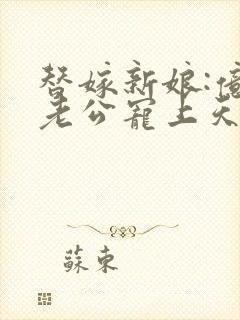 替嫁新娘:億
老公寵上天
蘇東